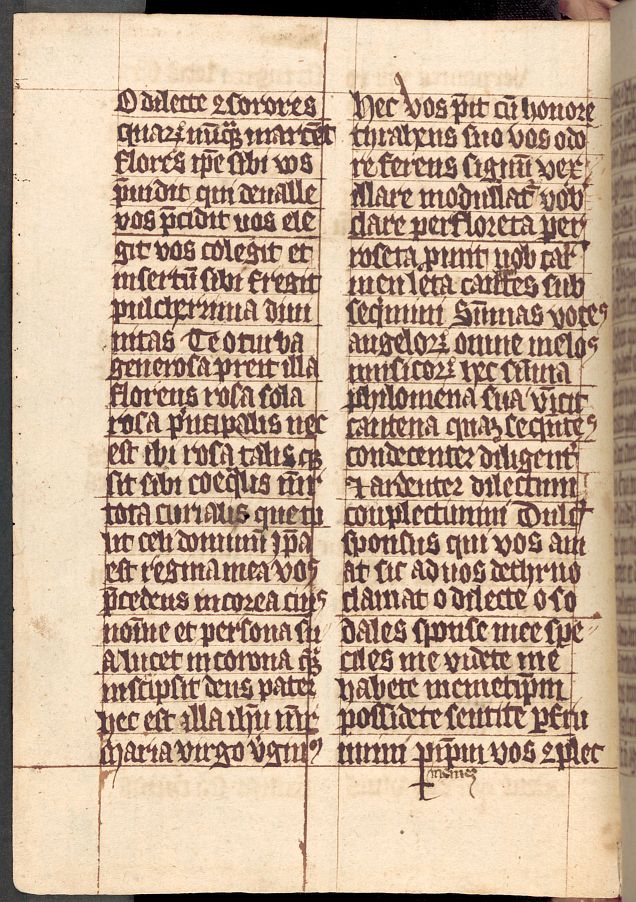 O dilecte ⁊ sorores
quaꝝ nūq̄ marcēt
flores ip̄e sibi vos
p̄uidit qui de valle
vos p̄cidit uos ele
git vos colegit et
insertū sibi fregit
pulcherrima diui
nitas Te o turba
generosa preit illa
florens rosa sola
rosa p̄ncipalis nec
est ibi rosa talis q̄
sit sibi coeq̄lis mr̄
tota curialis que to
ut celi dominū ip̄a
est regina mea vos
p̄cedens in corea cuiꝰ
nom̄e et persona su
a lucet in corona q̄
inscipsit deus pater
hec est illa ihū mr̄
maria virgo v̄ginū
Hec vos p̄it cū honore
thrahens suo vos odo
re ferens signū vex
illare modullat̄ vob̄
clare per floreta per
roseta p̄unt uob̄ car
men leta cantes sub
sequimini Sūmas votes
angeloꝝ omne melos
musicoꝝ hec sūma
philomena sua vīcit
cantena quā sequītes
condecenter diligent̄
⁊ ardenter dilectum
complectimini Dulc̄
sponsus qui vos am
at sic ad uos de thrno
clamat o dilecte o so
dales sponse mee spe
ciles me videte me
habete memetip̄m
possidete sentite
vos ⁊plec